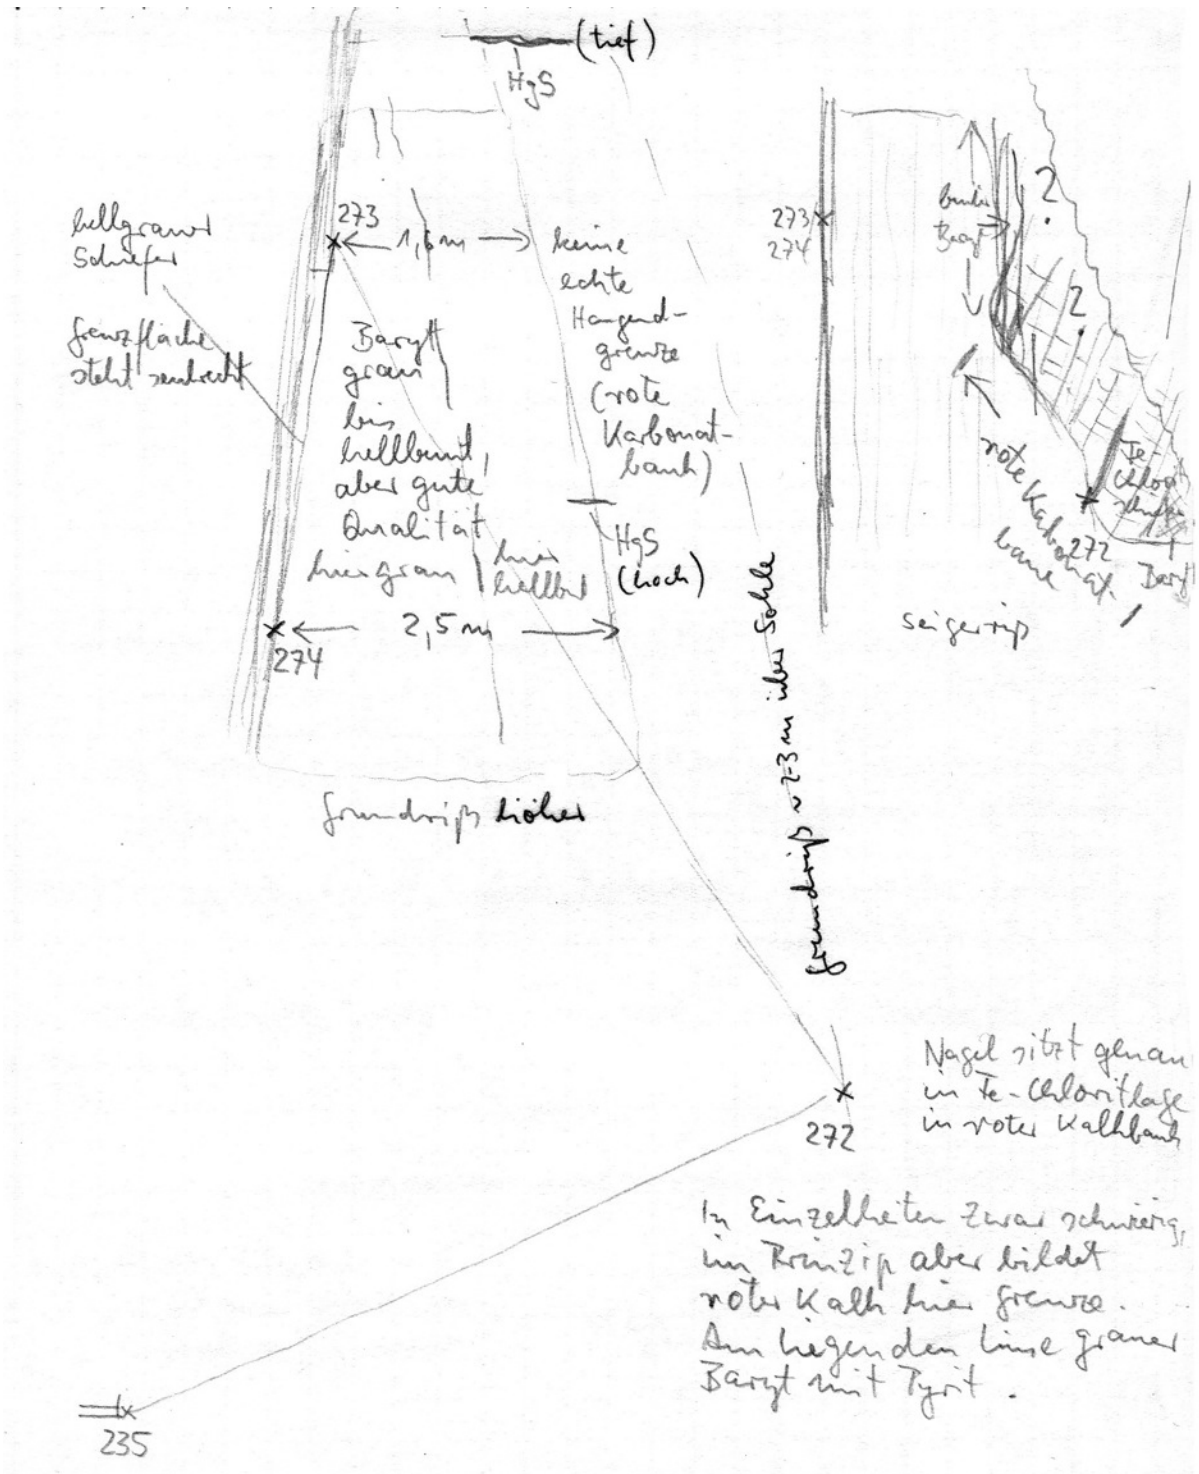 (tief)
HgS
hellgrauer
Schiefer
Grenzfläche
steht senkrecht
273
1,6 m
keine
echte
Hangend-
grenze
(rote
Karbonat-
bank)
Baryt
grau
bis
hellbunt,
aber gute
Qualität
hier grau
hier
hellbunt
HgS
(hoch)
2,5 m
274
Grundriß höher
Grundriß ~ 2-3 m über Sohle
273
274
bunter
Baryt
?
?
rote Karbonat.
bank
Fe-
Chlorit
schiefer
272
Baryt
Seigerriß
272
Nagel sitzt genau
in Fe-Chloritlage
in roter Kalkbank
In Einzelheiten zwar schwierig,
im Prinzip aber bildet
roter Kalk hier Grenze.
Am Liegenden Linse grauer
Baryt mit Pyrit.
235